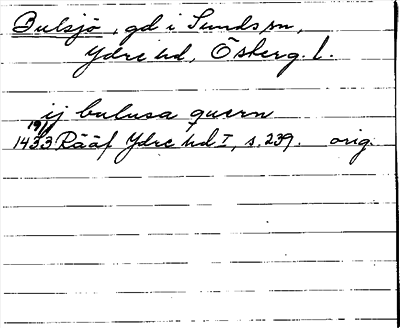 Bulsjö, gd i Sunds sn,
Ydre hd, Österg. l.
ij bulusa quern
19/1
1433 Rääf Ydre hd I, s. 239. orig.